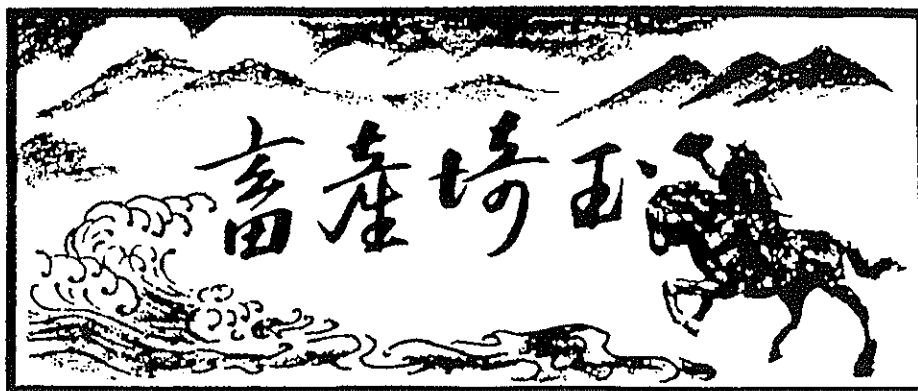 畜産埼玉